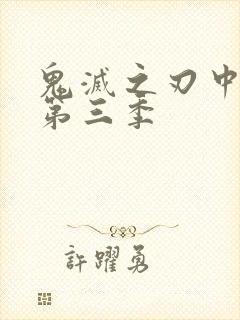 鬼滅之刃中
第三季
許躍勇